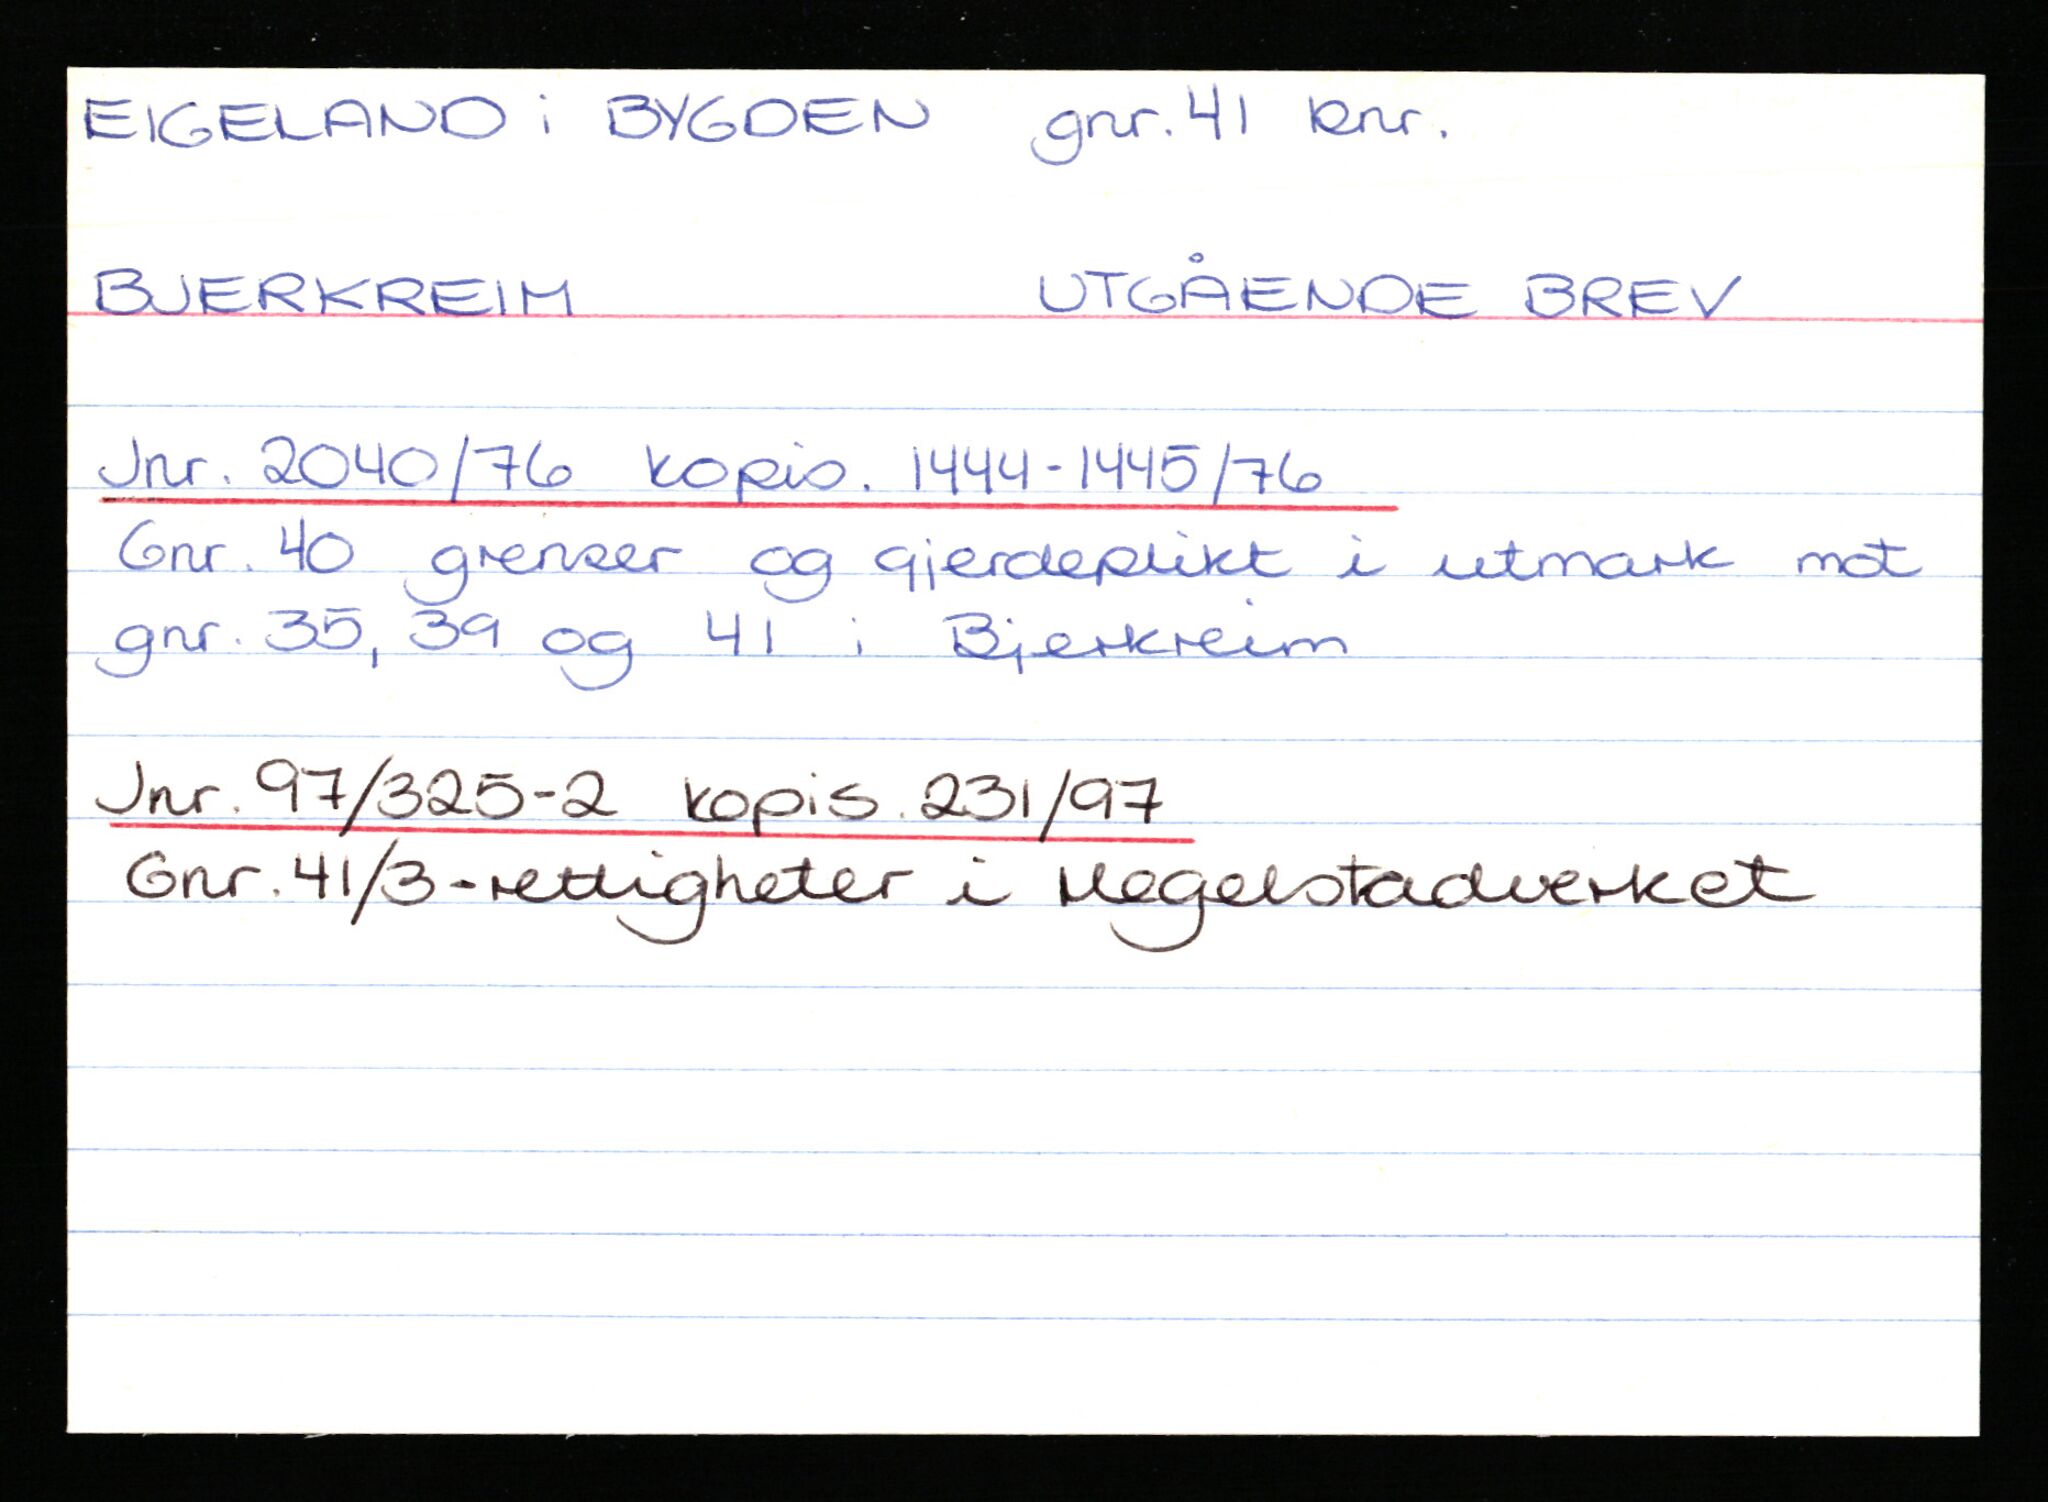 EIGELAND i BYGDEN gnr. 41 bnr.
BJERKREIM UTGÅENDE BREV
Jnr. 2040/76 kopis. 1444-1445/76
Gnr. 40 grenser og gjerdeplikt i utmark mot
gnr. 35, 39 og 41 i Bjerkreim
Jnr. 97/325-2 kopis. 231/97
Gnr. 41/3 - rettigheter i Hegelstadverket